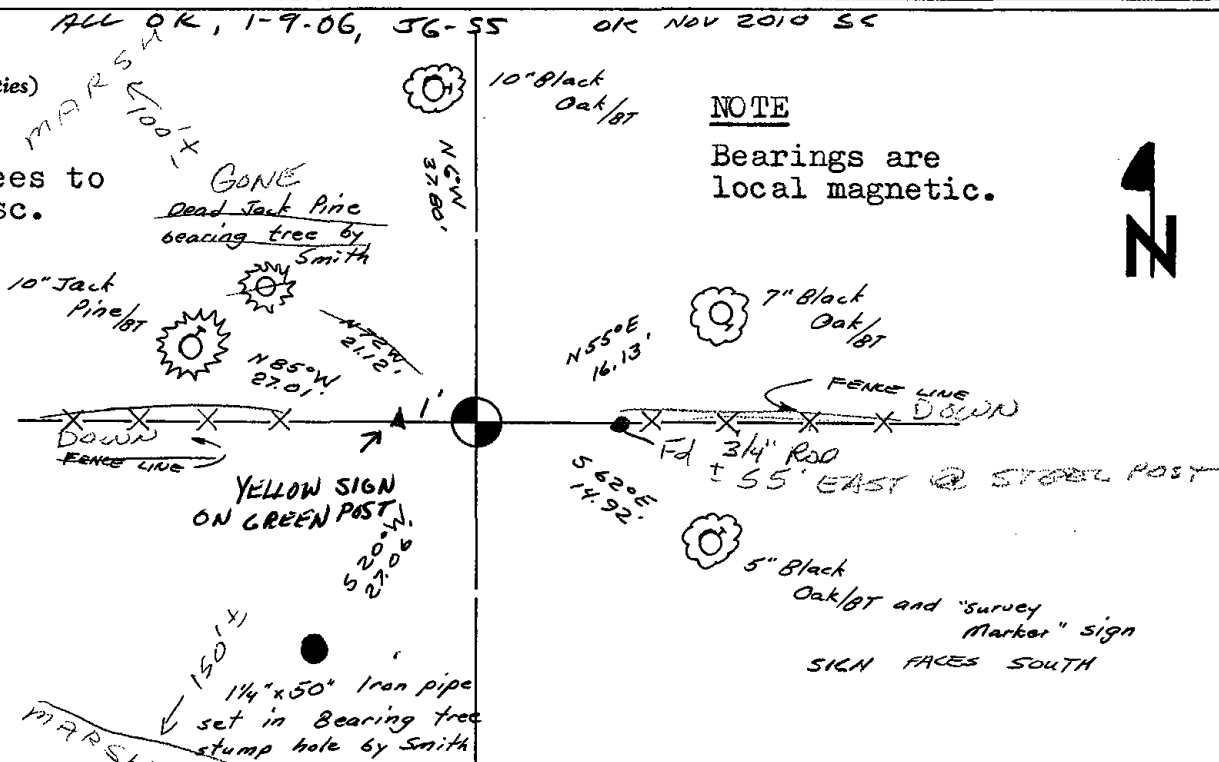 ALL OK, 1-9-06, JG-SS OK NOV 2010 SS
ties)
MARSH
100'±
ees to
sc.
GONE
Dead Jack Pine
bearing tree by
Smith
10" Black
Oak/BT
N6°W
37.80'
NOTE
Bearings are
local magnetic.
N
10" Jack
Pine/BT
N72W
21.12'
N85°W
27.01'
N55°E
16.13'
7" Black
Oak/BT
FENCE LINE
DOWN
DOWN
FENCE LINE
1'
Fd 3/4" ROD
± 55' EAST @ STEEL POST
YELLOW SIGN
ON GREEN POST
S62°E
14.92'
S20°W
27.06
5" Black
Oak/BT and "Survey
Marker" sign
SIGN FACES SOUTH
150'±
1¼" x 50" Iron pipe
set in Bearing tree
stump hole by Smith
MARSH